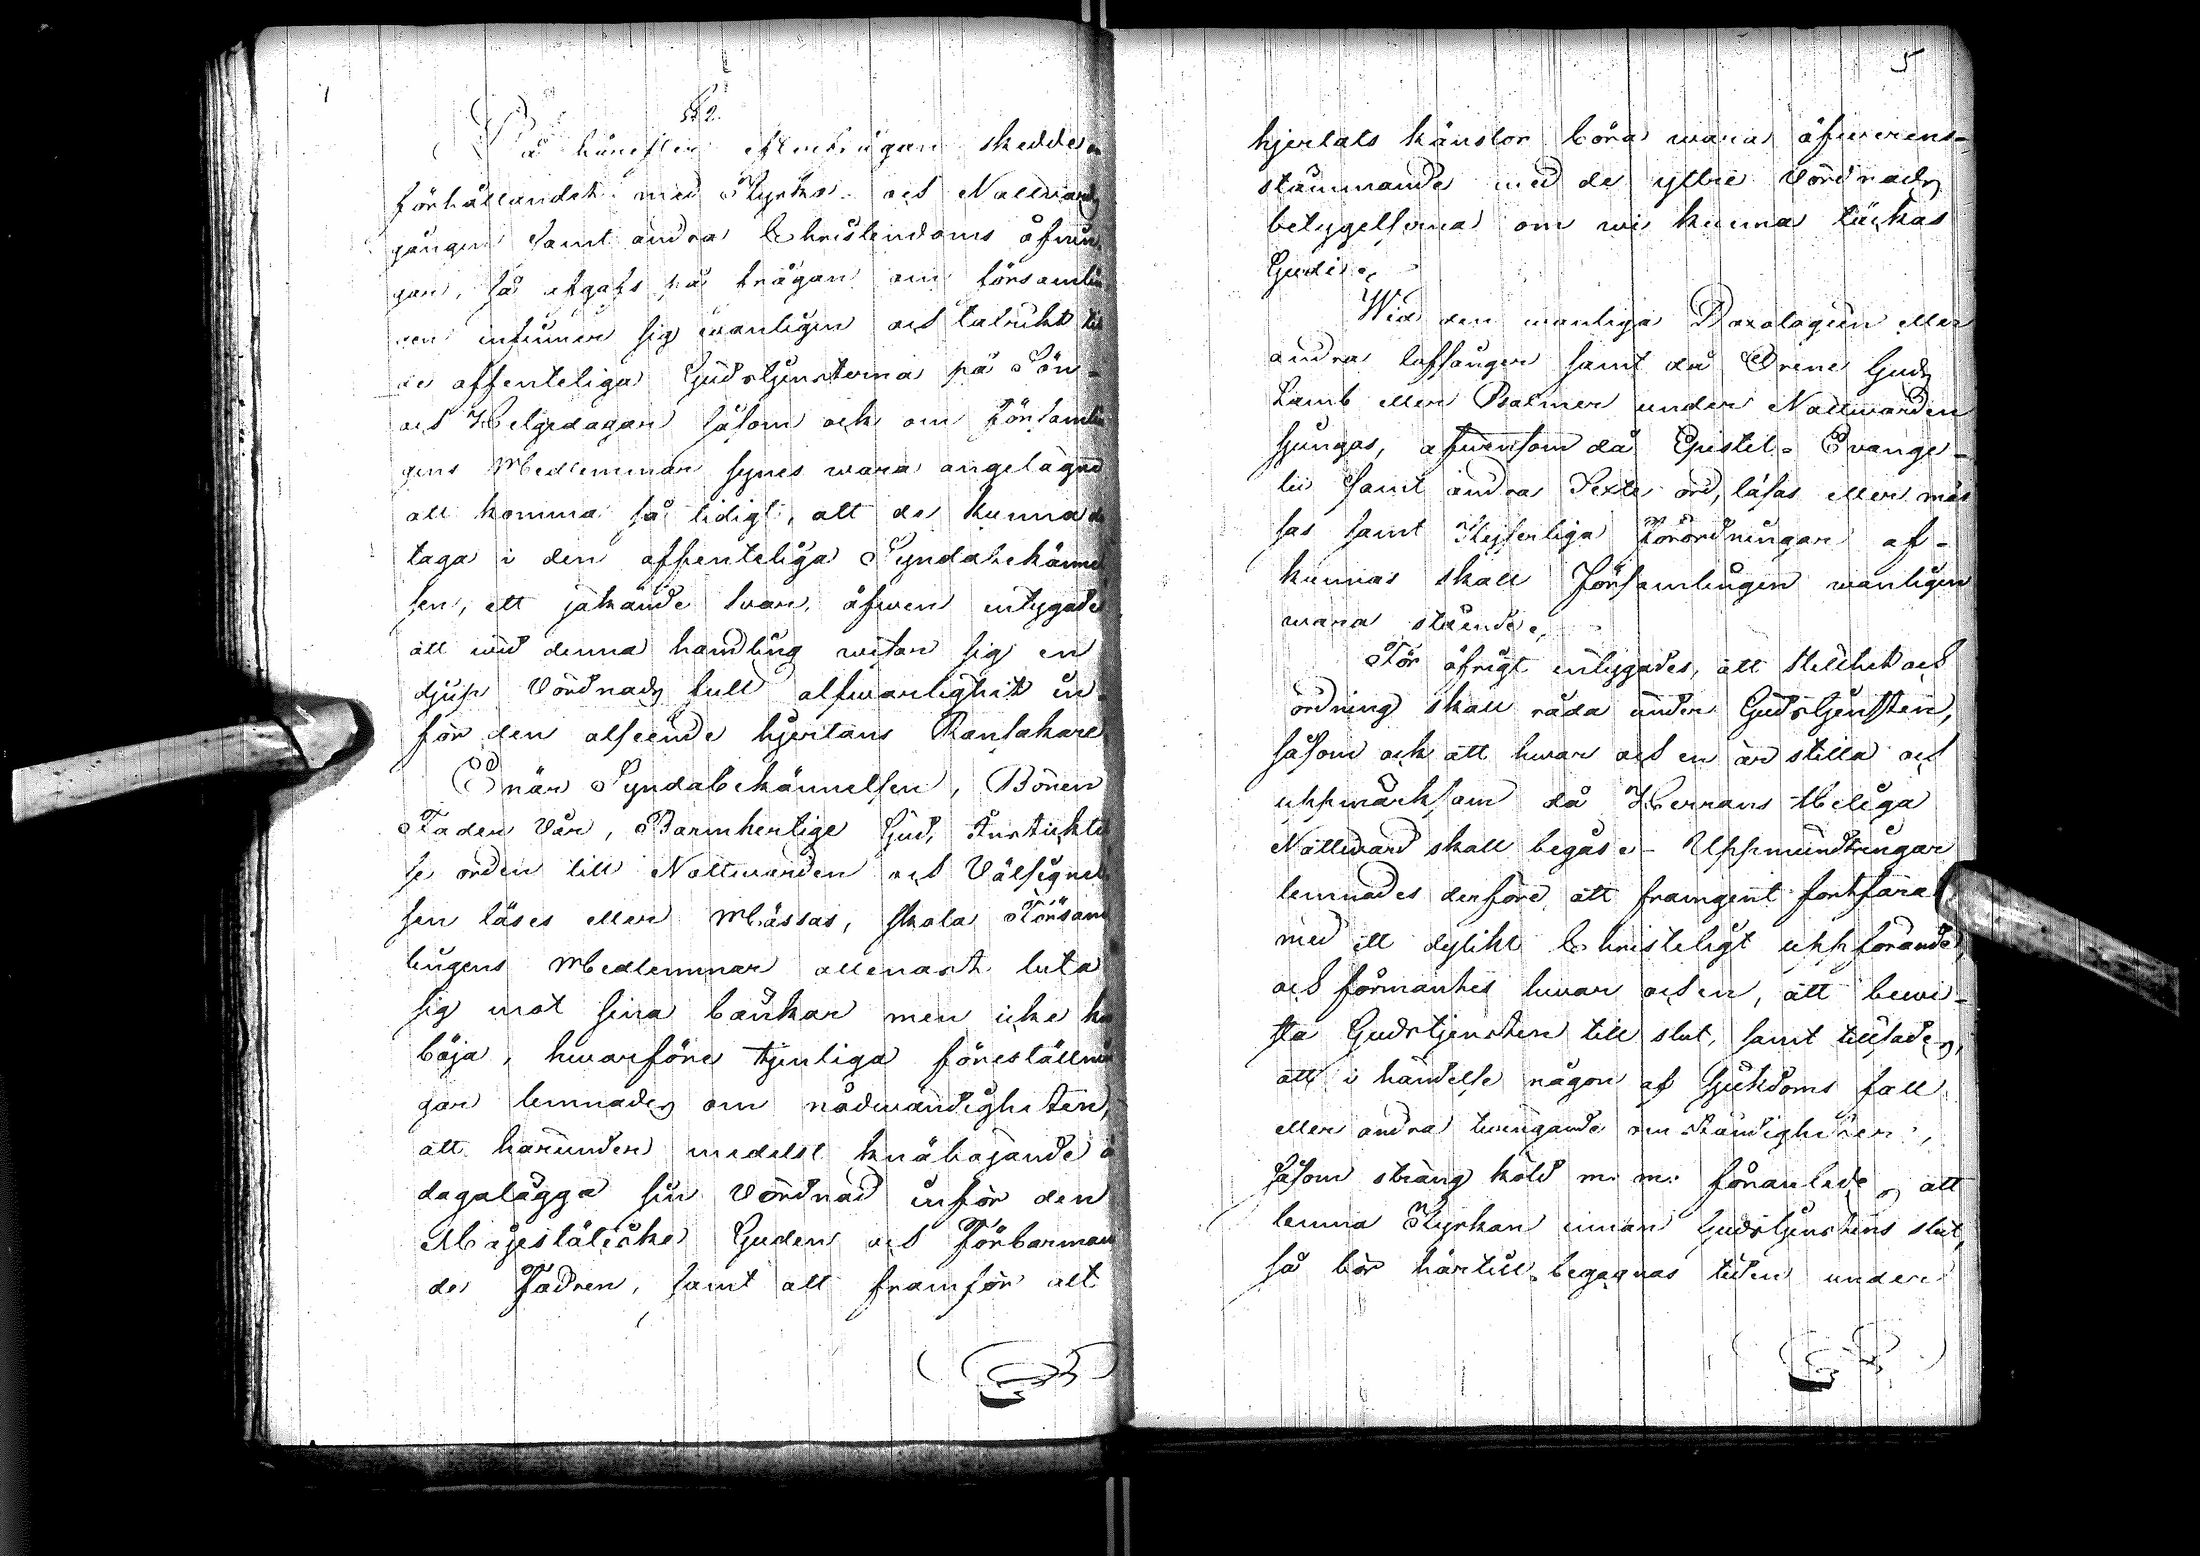 § 2.
Då härefter efterfrågan skedde om
förhållandet med Kyrko- och Nattvards
gången samt andra Christendoms öfnin
gar, så afgafs på frågan om församlin
gen infinner sig wanligen och talrikt till
de offenteliga Gudstjensterna på Sön-
och Helgedagar såsom ock om Församlin
gens Medlemmar synes wara angelägne
att komma så tidigt, att de kunna del
taga i den offenteliga Syndabekännel
sen, ett jakande swar, äfwen intygades
att wid denna handling wisar sig en
djup Vördnads full alfwarlighet in-
för den alseende hjertans Ransakare
Enär Syndabekännelsen, Bönen
Fader Vår, Barmhertige Gud, Instiktel
se orden till Nattwarden och Välsignel
sen läses eller Mässas, skola Försam
lingens Medlemmar allenast luta
sig mot sina bänkar men icke knä
böja, hwarföre tjenliga föreställnin
gar lemnades om nödwändigheten,
att härunder medelst knäböjande å
dagalägga sin Vördnad inför den
Majestätiske Guden och Förbarman
de Fadren, samt att framför alt
5
hjertats känslor böra wara öfwerens-
stämmande med de yttre Vördnads
betygelserna om wi kunna täckas
Gudi.
Wid den wanliga Doxologien eller
andra lofsånger samt då O rene Guds
Lamb eller Psalmer under Nattwarden
sjungas, äfwensom då Epistel- Evange-
lii samt andra Texte ord, läsas eller mäs
sas samt Kejserliga Förordningar af-
kunnas skall Församlingen wanligen
wara stående.
För öfrigt intygades, att stillhet och
ordning skall råda under Gudstjensten,
såsom ock att hwar och en är stilla och
uppmärksam då Herrans Heliga
Nattward skall begås. - Uppmuntringar
lemnades derföre att framgent fortfara
med ett dylikt Christeligt uppförande,
och förmantes hwar och en, att bewi-
sta Gudstjensten till slut, samt tillsades,
att i händelse någon af Sjukdoms fall
eller andra twingande omständigheter,
såsom sträng köld m. m. föranledes att
lemna Kyrkan innan Gudstjenstens slut,
så bör härtill begagnas tiden under